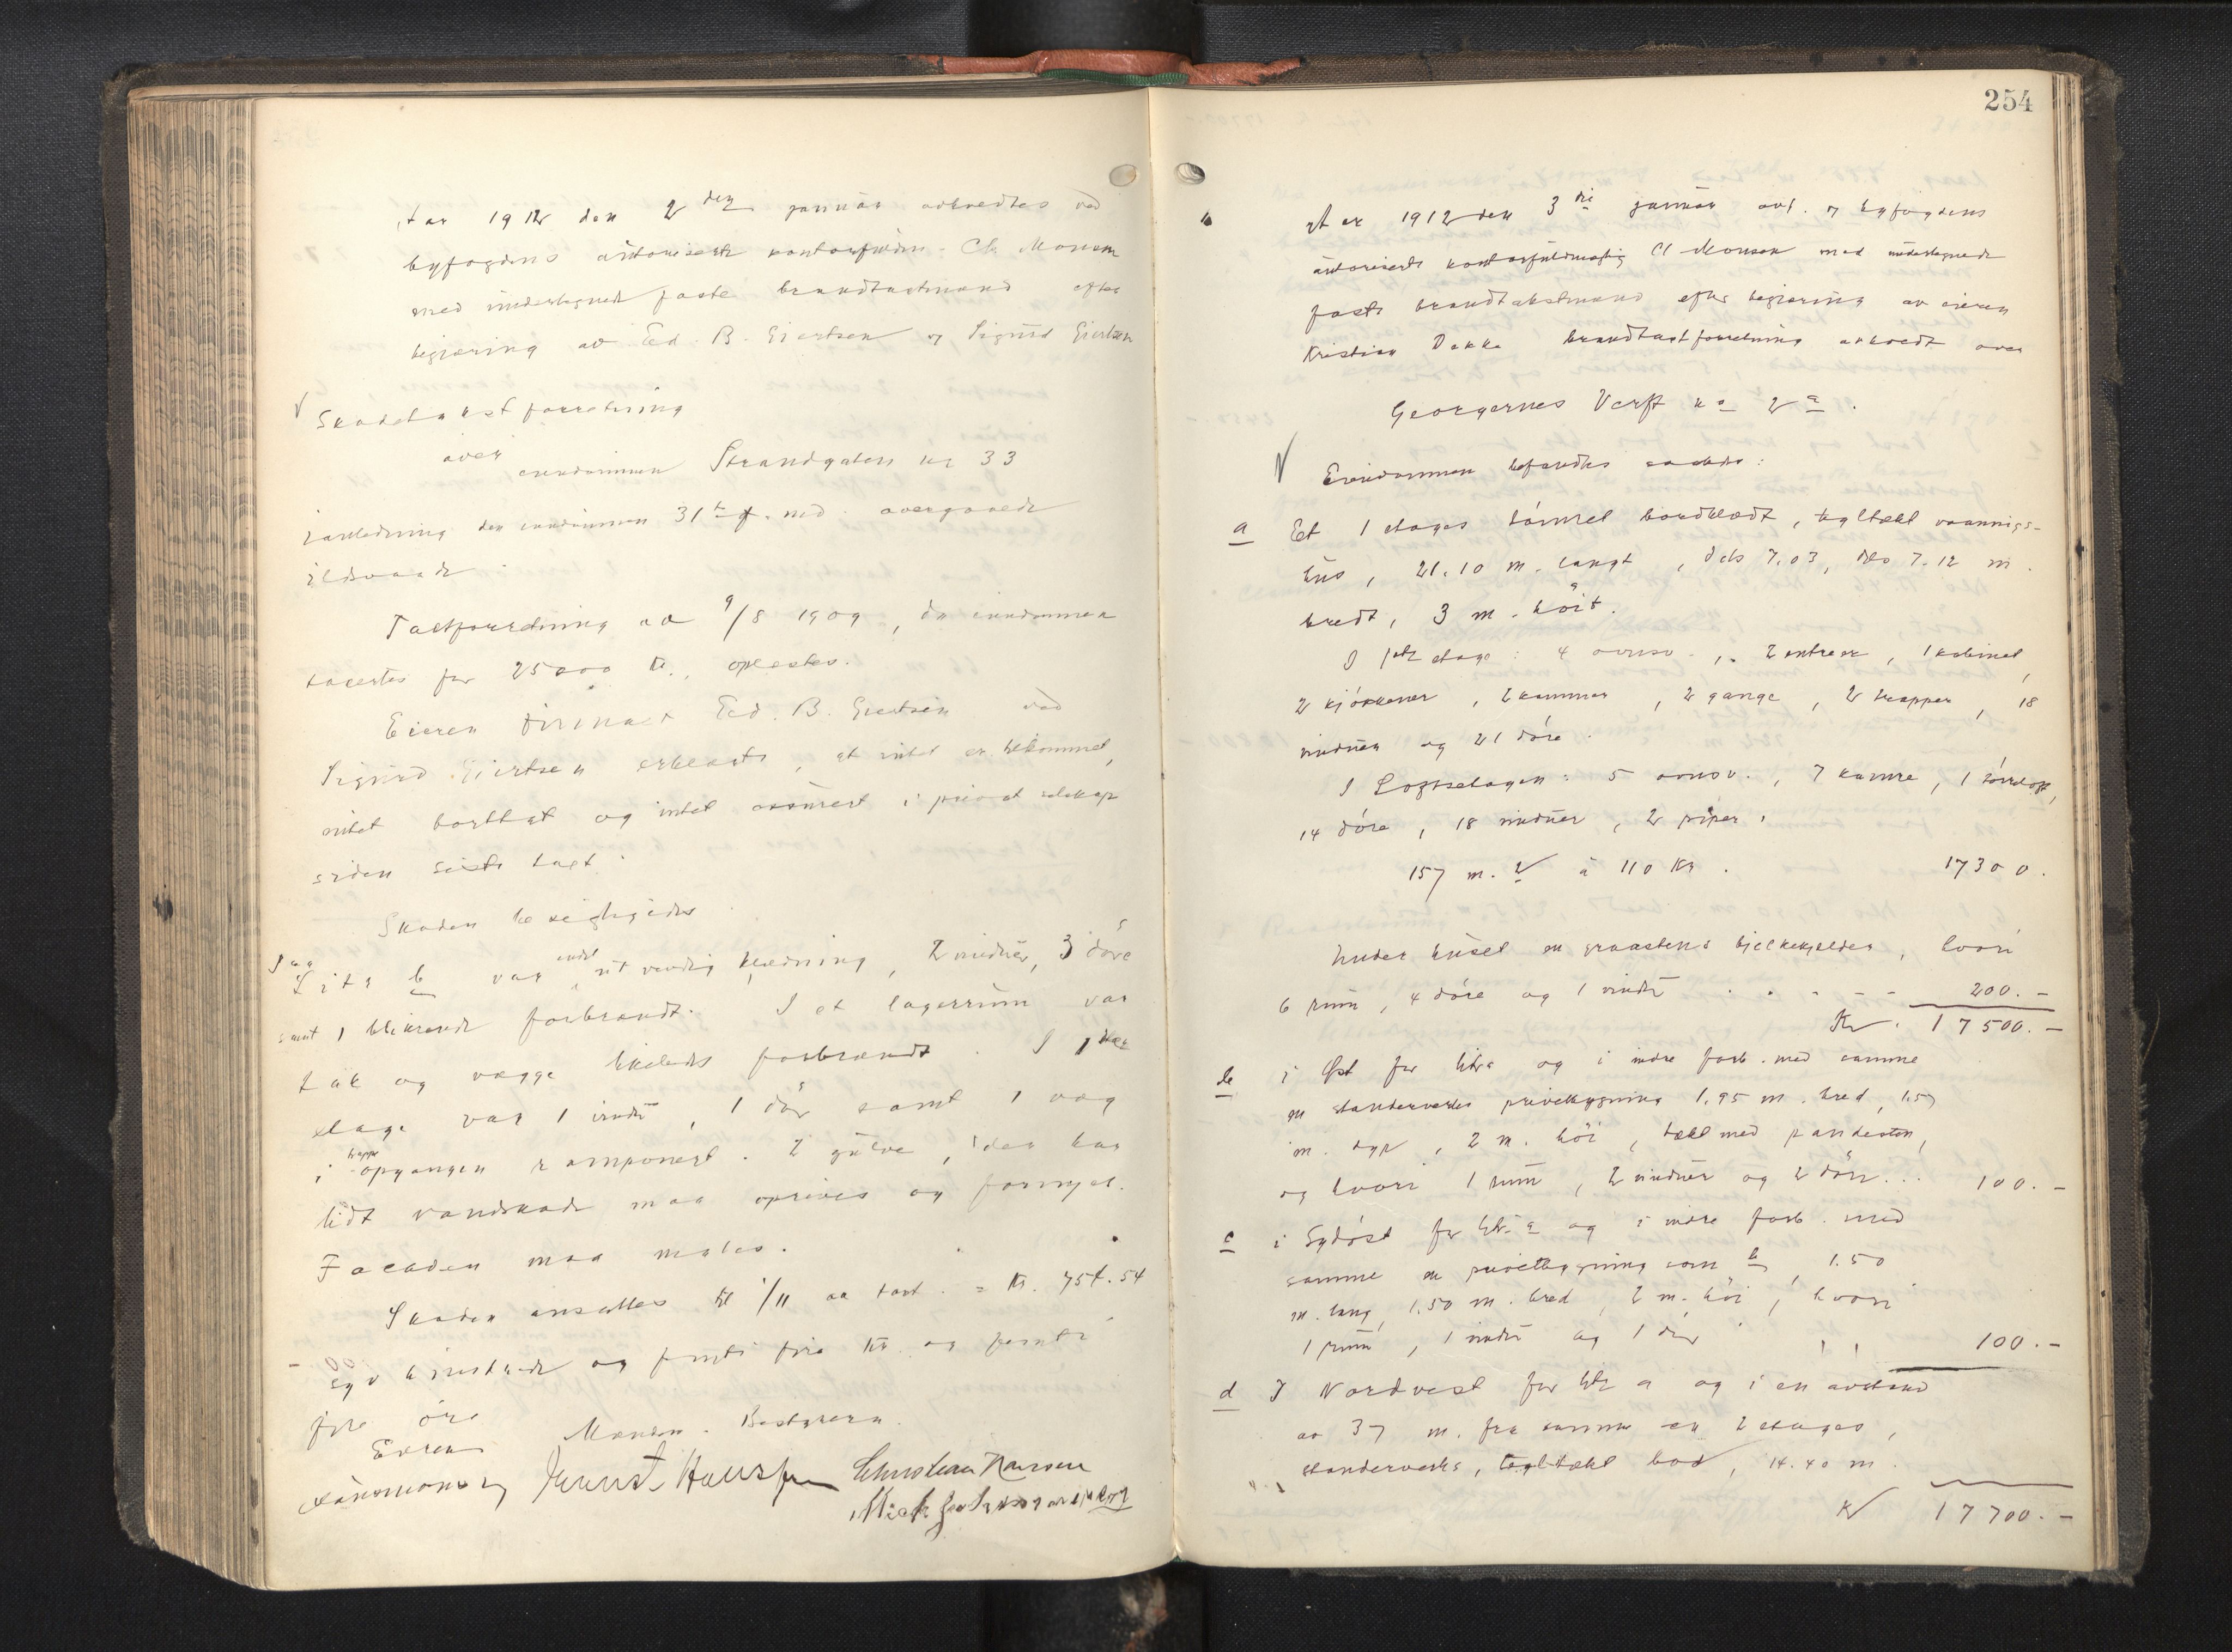 Aar 1912 den 2den januar avholdtes ved
byfogdens autoriserte kontorfuldm. Cl. Monsen
med undertegnede faste brandtakstmænd efter
begjæring av Ed. B. Giertsen og Sigurd Giertsen
Skadetakstforretning
over
eiendommen Strandgaten nr 33
i anledning den eiendommen 31te f. md. overgaaede
ildsvaade.
Takstforretning av 9/8 1909, da eiendommen
takertes for 25000 kr., oplæstes.
Eieren firmaet Ed. B. Giertsen ved
Sigurd Giertsen erklærte, at intet er tilkommet,
intet borttat og intet assurert i privat selskap
siden sidste takst.
Skaden besigtigedes
Paa
Litr b var endel utvendig klædning, 2 vinduer, 3 döre
samt 1 blikrende forbrændt. I et lagerrum var
tak og vægge likeledes forbrændt. I 1ste
etage var 1 vindu, 1 dör samt 1 væg
i trappeopgangen ramponert. 2 gulve, der har
lidt vandskade maa oprives og fornyes.
Facaden maa males.
Skaden ansattes til 1/11 aa takst. = Kr. 754.54
syv hundrede og femti fire kr og femti
fire öre
Monsen. Bestyreren.
Eieren
Christian Hansen
254
Aar 1912 den 3die januar avh. v byfogdens
autoriserte kontorfuldmægtig Cl Monsen med undertegnede
faste brandtakstmænd efter begjæring av eieren
Kristian Dekke brandtakstforretning avholdt over
Georgernes Verft no 2a.
Eiendommen befandtes saaledes:
a Et 1 etages tömret bordklædt, tegltækt vaanings-
hus, 21.10 m. langt, dels 7.03, dels 7.12 m.
bredt, 3 m. höit.
I 1ste etage: 4 ovnsv., 2 entreer, 1 kabinet,
2 kjökkener, 2 kammer, 2 gange, 2 trapper, 18
vinduer og 21 döre.
I Loftsetagen: 5 ovnsv., 7 kamre, 1 törreloft,
14 döre, 18 vinduer, 2 piper.
157 m.2 à 110 Kr. 17300.
Under huset en graastens bjelkekjelder, hvori
6 rum, 4 döre og 1 vindu . . . - - 200.-
Kr. 17500.-
b i Öst for litr a og i indre forb. med samme
en standerverks privetbygning 1.95 m. bred, 1.57
m. dyp, 2 m. höi, tækt med pandesten,
og hvori 1 rum, 2 vinduer og 2 döre... 100.-
c i Sydöst for litr a og i indre forb. med
samme en privetbygning som b, 1.50
m. lang, 1.50 m. bred, 2 m. höi, hvori
1 rum, 1 vindu og 1 dör 100.-
d I Nordvest for litr a og i en avstand
av 37 m. fra samme en 2 etages,
standerverks, tegltækt bod, 14.40 m.
Kr 17700.-